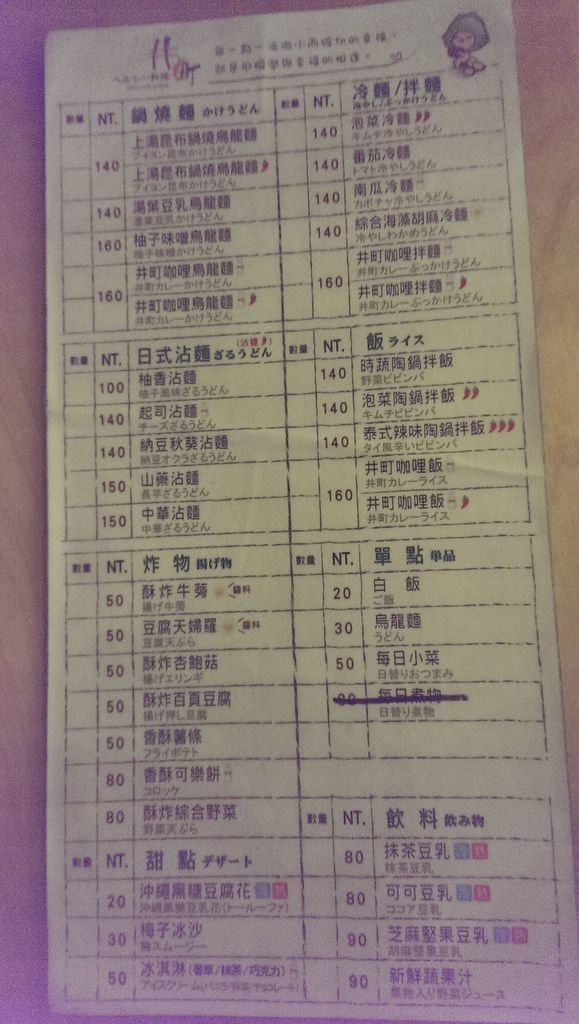 井町
每一點一滴微小而
數量 NT. 鍋燒麵 かけうどん
140 上湯昆布鍋燒烏龍麵
ブイヨン昆布かけうどん
上湯昆布鍋燒烏龍麵
ブイヨン昆布かけうどん
140 湯葉豆乳烏龍麵
湯葉豆乳かけうどん
160 柚子味噌烏龍麵
柚子味噌かけうどん
160 井町咖哩烏龍麵
井町カレーかけうどん
井町咖哩烏龍麵
井町カレーかけうどん
數量 NT. 冷麵/拌麵
冷やし/ぶっかけうどん
140 泡菜冷麵
キムチ冷やしうどん
140 番茄冷麵
トマト冷やしうどん
140 南瓜冷麵
カボチャ冷やしうどん
140 綜合海藻胡麻冷麵
冷やしわかめうどん
160 井町咖哩拌麵
井町カレーぶっかけうどん
井町咖哩拌麵
井町カレーぶっかけうどん
數量 NT. 日式沾麵 ざるうどん
100 柚香沾麵
柚子風味ざるうどん
140 起司沾麵
チーズざるうどん
140 納豆秋葵沾麵
納豆オクラざるうどん
150 山藥沾麵
長芋ざるうどん
150 中華沾麵
中華ざるうどん
數量 NT. 飯 ライス
140 時蔬陶鍋拌飯
野菜ビビンバ
140 泡菜陶鍋拌飯
キムチビビンバ
140 泰式辣味陶鍋拌飯
タイ風辛いビビンバ
160 井町咖哩飯
井町カレーライス
井町咖哩飯
井町カレーライス
數量 NT. 炸物 揚げ物
50 酥炸牛蒡 醬料
揚げ牛蒡
50 豆腐天婦羅 醬料
豆腐天ぷら
50 酥炸杏鮑菇
揚げエリンギ
50 酥炸百頁豆腐
揚げ押し豆腐
50 香酥薯條
フライポテト
80 香酥可樂餅
コロッケ
80 酥炸綜合野菜
野菜天ぷら
數量 NT. 單點 単品
20 白飯
ご飯
30 烏龍麵
うどん
50 每日小菜
日替りおつまみ
80 每日煮物
日替り煮物
數量 NT. 甜點 デザート
20 沖繩黑糖豆腐花 冷 熱
沖繩黑糖豆乳花(トールーファ)
30 梅子冰沙
梅スムージー
50 冰淇淋(香草/抹茶/巧克力)
アイスクリーム(バニラ/抹茶/チョコレート)
數量 NT. 飲料 飲み物
80 抹茶豆乳 冷 熱
抹茶豆乳
80 可可豆乳 冷 熱
ココア豆乳
90 芝麻堅果豆乳 冷 熱
胡麻堅果豆乳
90 新鮮蔬果汁
果物入り野菜ジュース